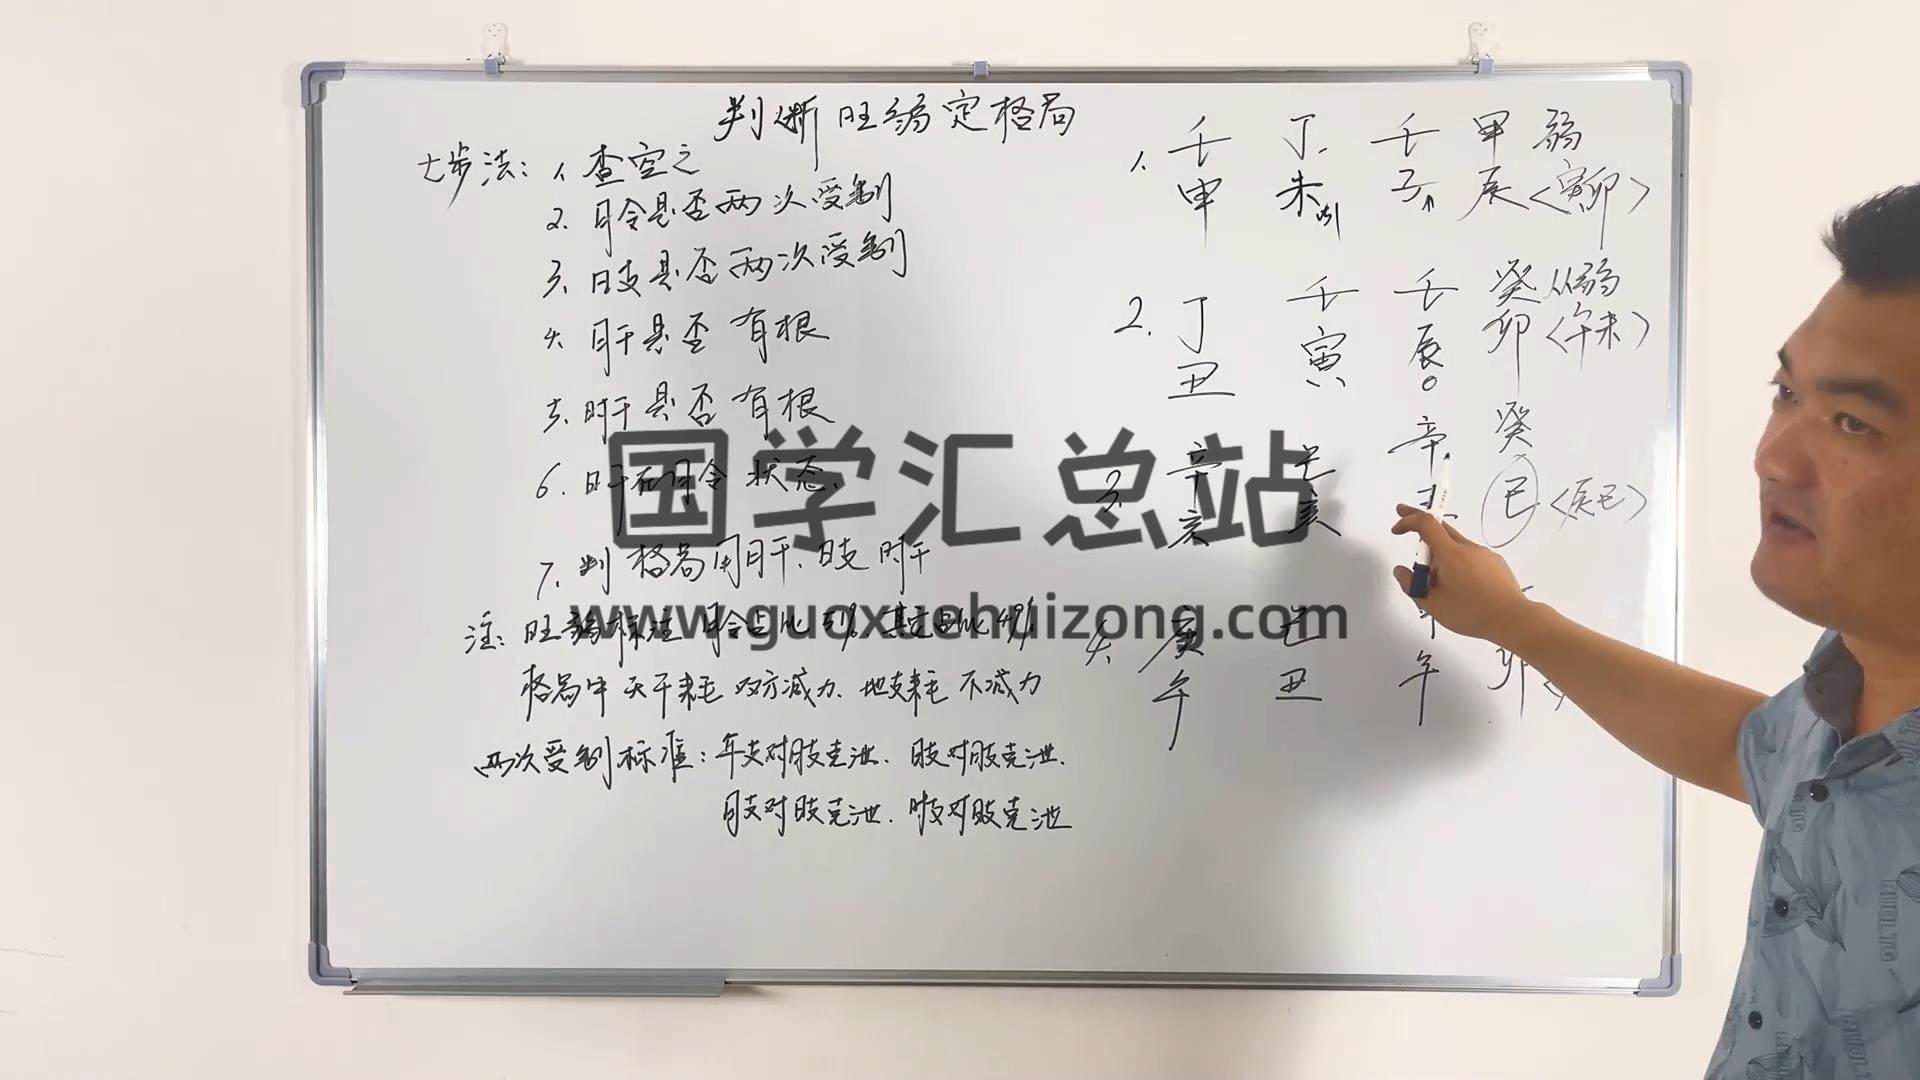 判断旺弱定格局
七步法：1、查空亡
2、月令是否两次受制
3、日支是否两次受制
4、月干是否有根
5、时干是否有根
6、日干在月令状态
7、判格局用月干、日支、时干
注：旺弱标注月令占比
格局中天干耗双方减力、地支耗不减力
两次受制标准：年支对月支克泄、日支对月支克泄、
月支对日支克泄、时支对日支克泄
1、壬 丁 壬 甲 弱
申 未 子 辰〈寅卯〉
2、丁 壬 壬 癸 从弱
丑 寅 辰 卯〈午未〉
3、辛 己 辛 癸
亥 亥 巳〈辰巳〉
4、庚 己
午 丑 午 卯
国学汇总站
www.guoxuehuizong.com
RUOLTG